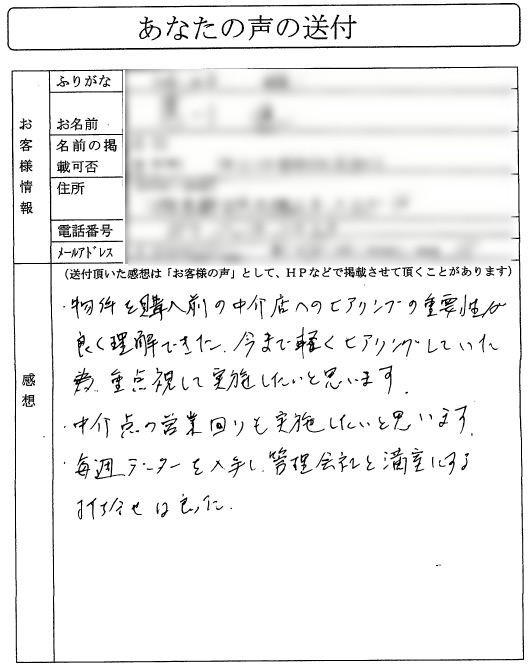 あなたの声の送付
お客様情報
ふりがな
お名前
名前の掲
載可否
住所
電話番号
メールアドレス
感想
(送付頂いた感想は「お客様の声」として、HPなどで掲載させて頂くことがあります)
・物件を購入前の中介店へのヒアリングの重要性が
良く理解できた。今まで軽くヒアリングしていた
為、重点視して実施したいと思います。
・中介点の営業回りも実施したいと思います。
・毎週データーを入手し、管理会社と満室にする
打合せは良った。